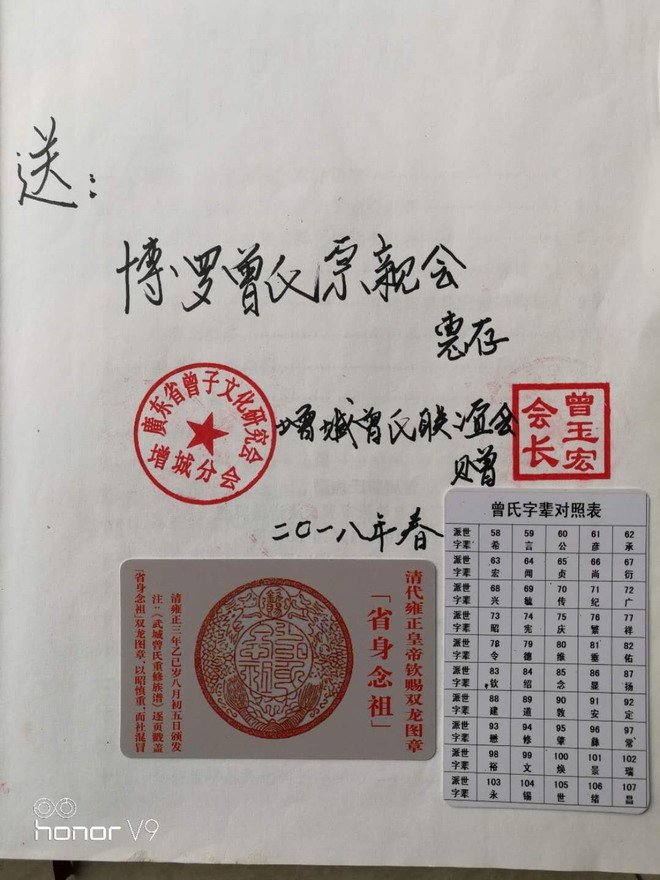 送：
博罗曾氏宗親会
惠存
廣东省曾子文化研究会
增城分会
增城曾氏联谊会
曾玉宏
会长
赠
二〇一八年春
清代雍正皇帝钦赐双龙图章
「省身念祖」
清雍正三年乙巳岁八月初五日颁发
注：《武城曾氏重修族谱》逐页戳盖
「省身念祖」双龙图章，以昭慎重，而杜混冒
曾氏字辈对照表
派世 58 59 60 61 62
字辈 希 言 公 彦 承
派世 63 64 65 66 67
字辈 宏 闻 贞 尚 衍
派世 68 69 70 71 72
字辈 兴 毓 传 纪 广
派世 73 74 75 76 77
字辈 昭 宪 庆 繁 祥
派世 78 79 80 81 82
字辈 令 德 维 垂 佑
派世 83 84 85 86 87
字辈 钦 绍 念 显 扬
派世 88 89 90 91 92
字辈 建 道 敦 安 定
派世 93 94 95 96 97
字辈 懋 修 肇 彝 常
派世 98 99 100 101 102
字辈 裕 文 焕 景 瑞
派世 103 104 105 106 107
字辈 永 锡 世 绪 昌
honor V9